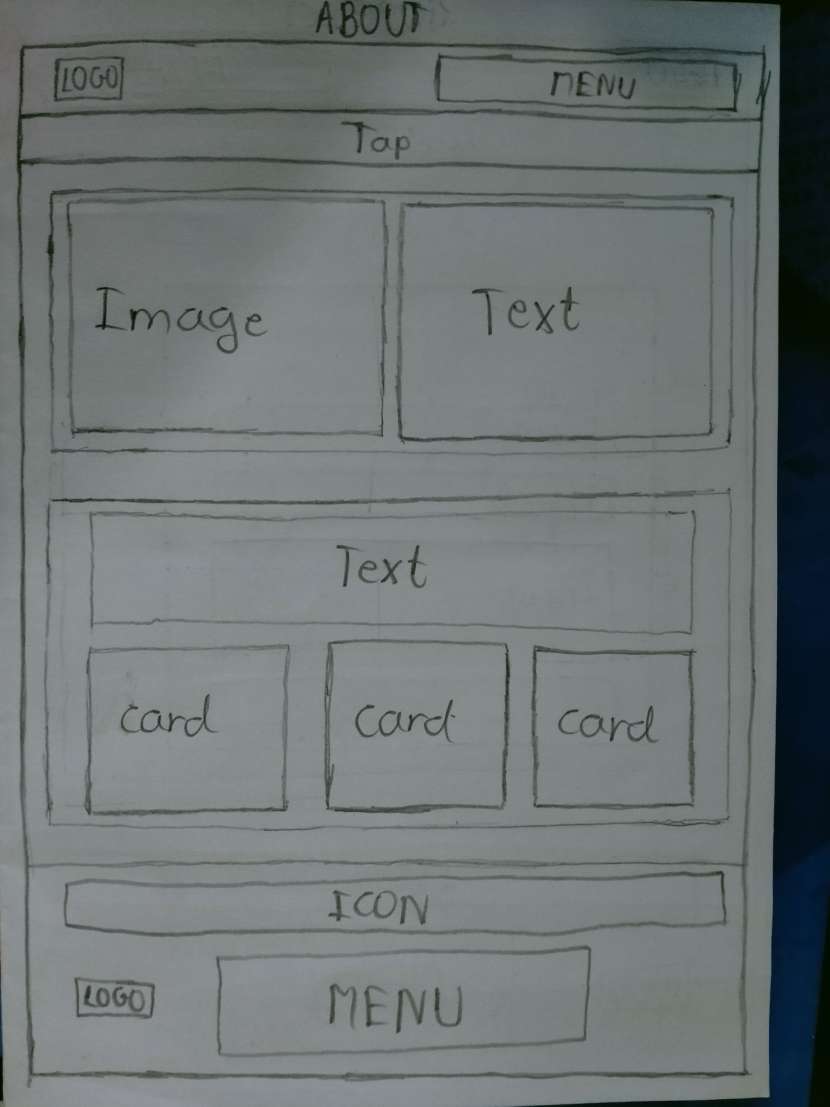 ABOUT
LOGO MENU
Tap
Image Text
Text
card card card
ICON
LOGO MENU